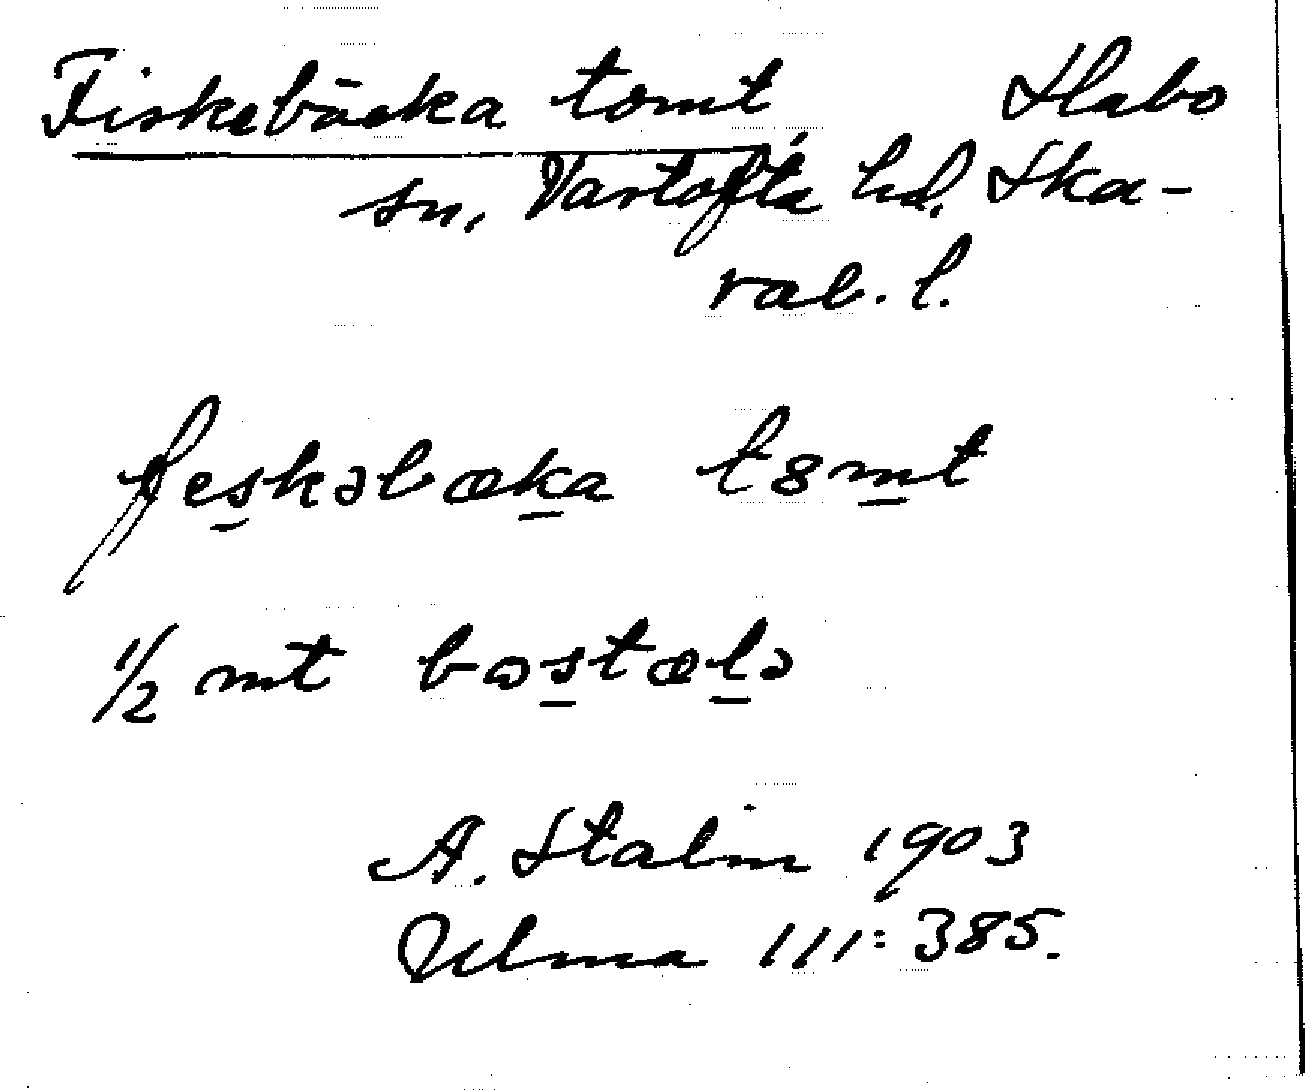 Fiskebäcka tomt, Habo
sn, Vartofta hd, Ska-
rab. l.
feskəbæka t8mt
1/2 mt bostælə
A. Stalin 1903
Ulma 111:385.